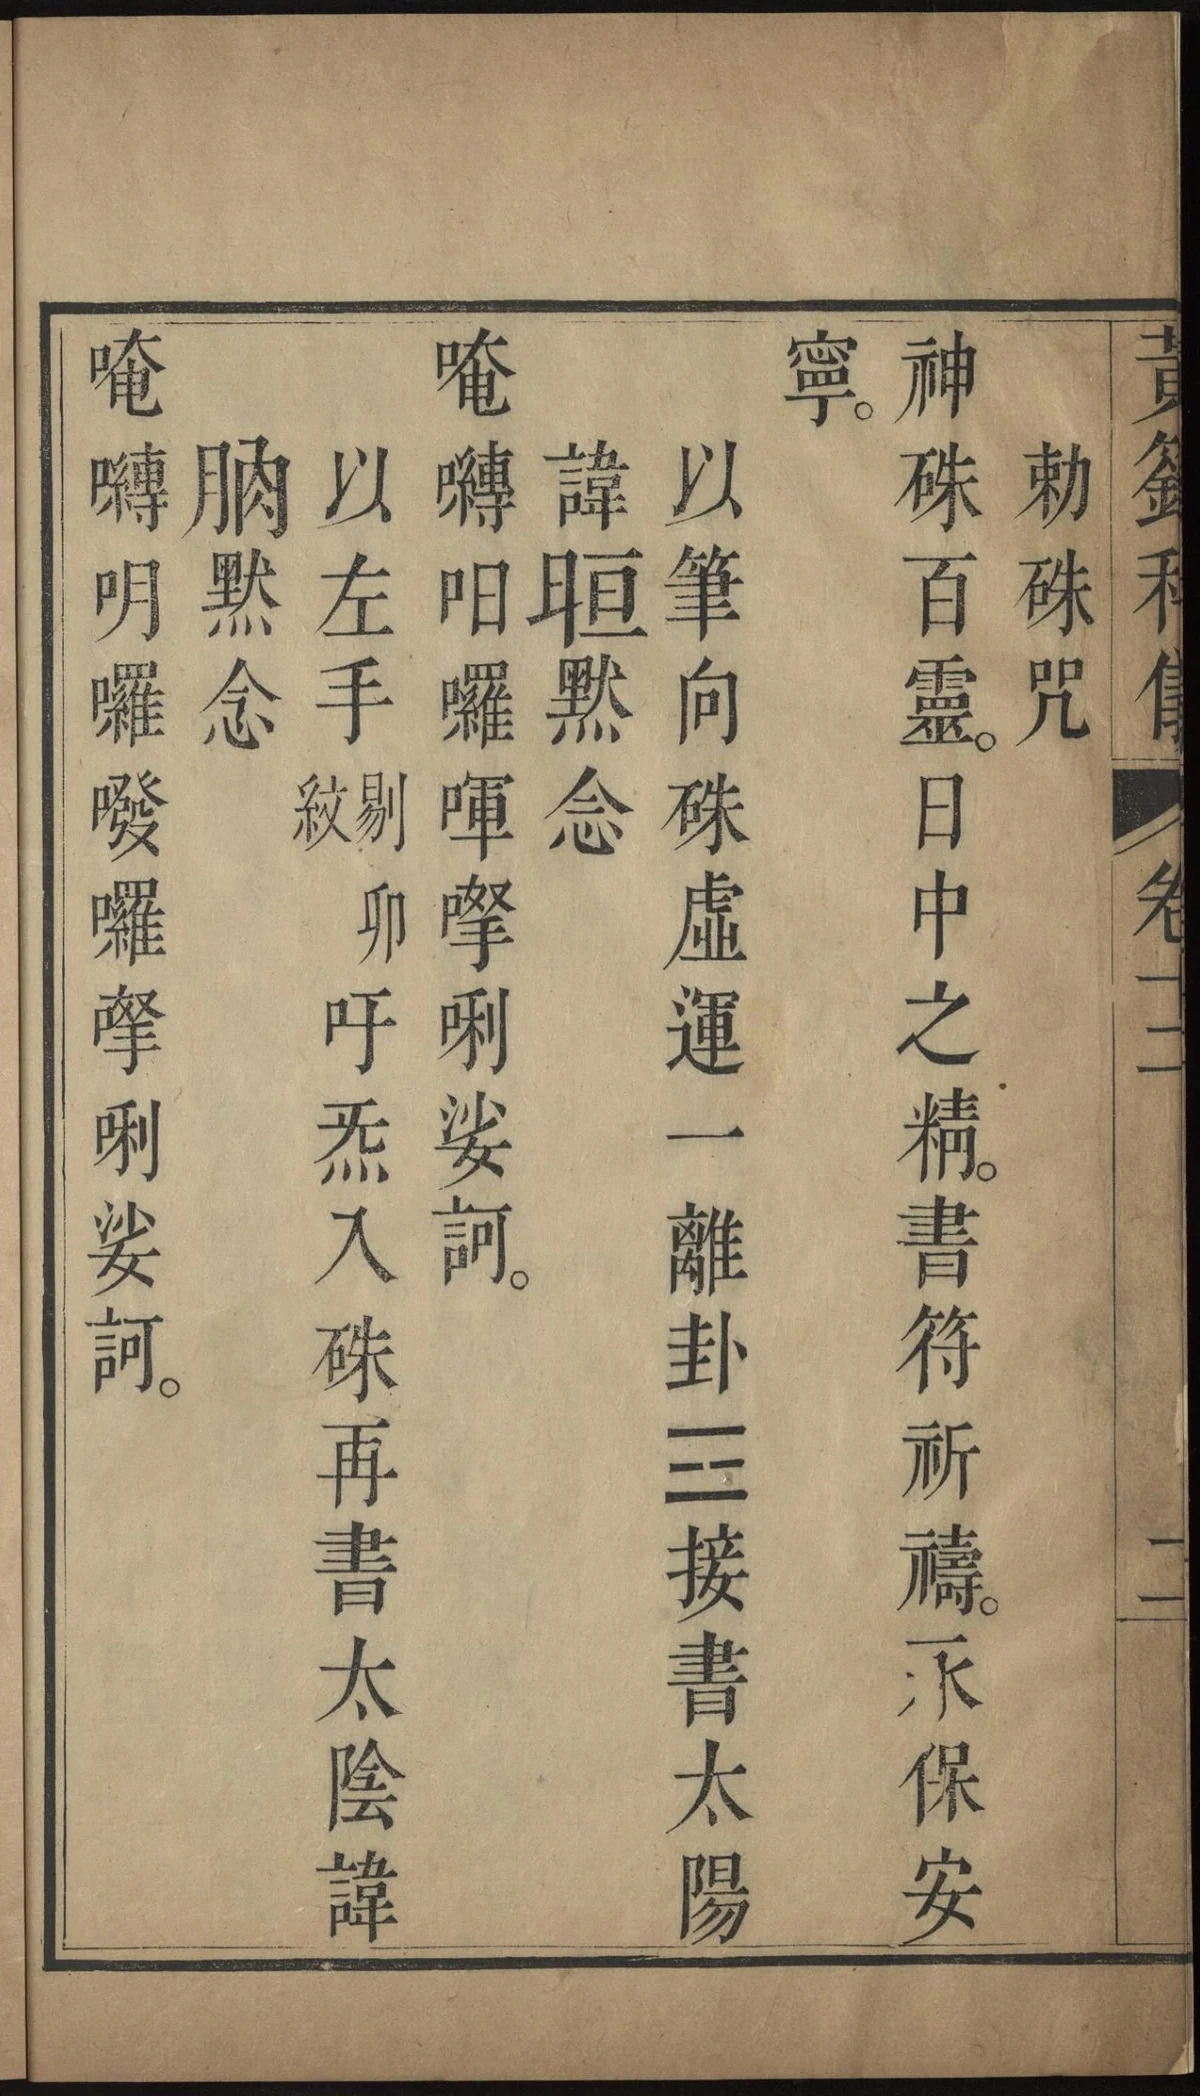 黃籙科儀 卷十二 二
勅硃咒
神硃百靈。日中之精。書符祈禱。永保安
寧。
以筆向硃虛運一離卦☲接書太陽
諱晅默念
唵囀囉喗唎娑訶。
以左手剔卯紋吁炁入硃再書太陰諱
朒默念
唵囀囉囉唎娑訶。